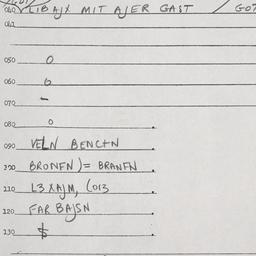 LIBAJX MIT AJER GAST GOT
050 0
060 0
070 –
080 0
090 VELN BENCHN
200 BRONFN )= BRANFN
210 L3 XAJM, (013
220 FAR BAJSN
230 $